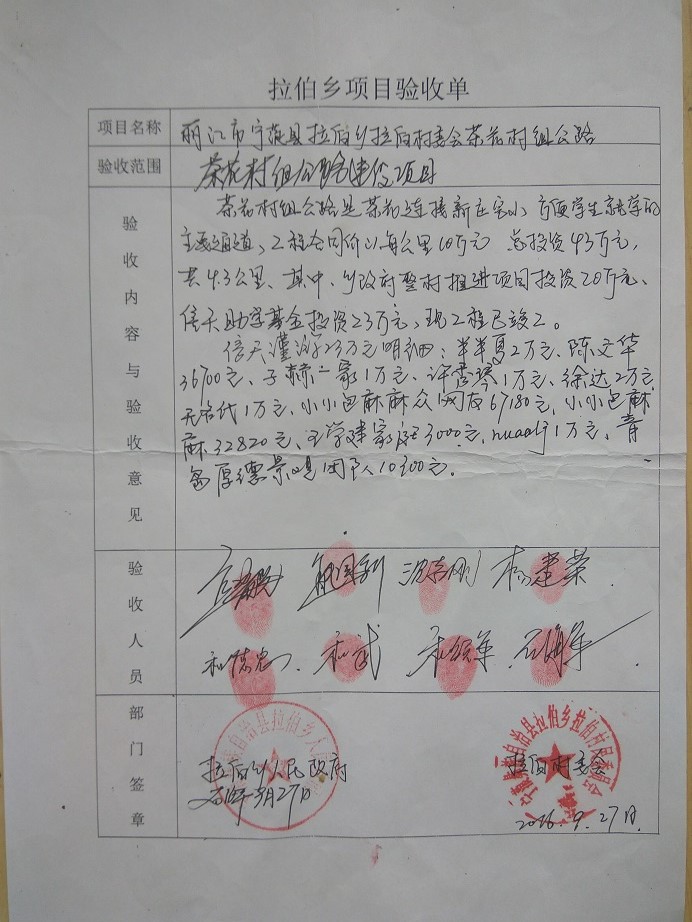 拉伯乡项目验收单
项目名称 丽江市宁蒗县拉伯乡拉伯村委会茶花村组公路
验收范围 茶花村组公路建设项目
验收内容与验收意见
茶花村组公路是茶花连接新庄完小、方便学生就学的
主要通道,工程合同价以每公里10万元 总投资43万元,
共4.3公里、其中、乡政府整村推进项目投资20万元、
信天助学基金投资23万元,现工程已竣工。
信天谨游23万元明细:半半夏2万元、陈文华
36700元、子赫一家1万元、许 琴1万元、徐达2万元
无名氏1万元、小小芭麻麻众网友67180元,小小芭麻
麻32820元、王学建家庭3000元,nuaalj1万元、青
岛厚德景 团队10300元.
验收人员
杨建荣
和武 石海军
部门签章
自治县拉伯乡人民
自治县拉伯乡拉伯村民委员会
拉伯乡人民政府 拉伯村委会
9月27日
2016.9.27日